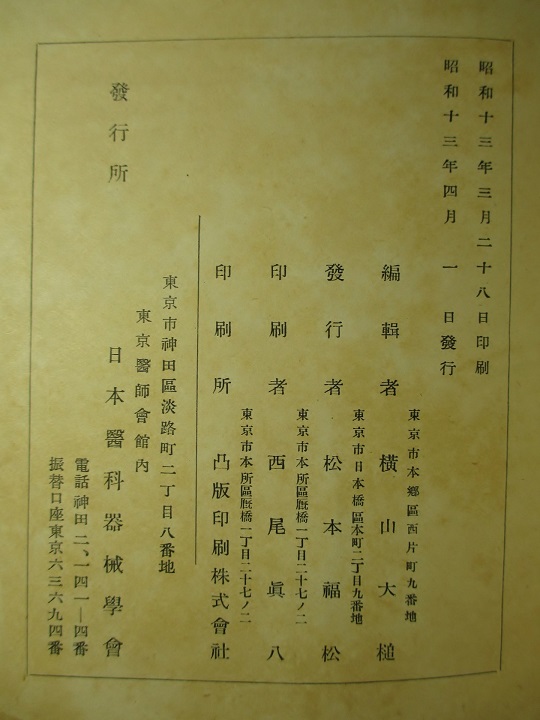 昭和十三年三月二十八日印刷
昭和十三年四月一日發行
東京市本鄕區西片町九番地
編輯者 橫山大槌
東京市日本橋區本町二丁目九番地
發行者 松本福松
東京市本所區厩橋一丁目二十七ノ二
印刷者 西尾眞八
東京市本所區厩橋一丁目二十七ノ二
印刷所 凸版印刷株式會社
東京市神田區淡路町二丁目八番地
東京醫師會館內
發行所 日本醫科器械學會
電話神田二、一四一—四番
振替口座東京六三六九四番